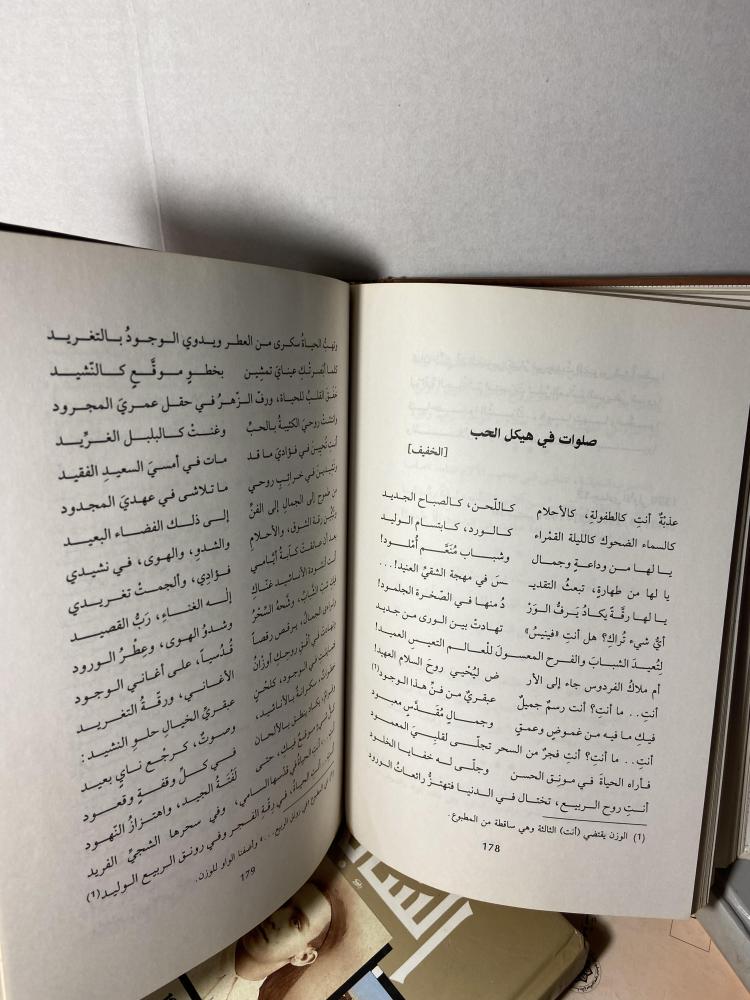 صلوات في هيكل الحب
[الخفيف]
عذبةٌ أنتِ كالطفولةِ، كالأحلام كاللّحن، كالصباح الجديد
كالسماء الضحوك كالليلة القمْراء كالورد، كابتسام الوليد
يا لها من وداعةٍ وجمال وشبابٍ مُنَعَّمٍ أُمْلود!
يا لها من طهارةٍ، تبعثُ التقديـ سَ في مهجة الشقيِّ العنيد!...
يا لها رقَّةً يكادُ يَرفُّ الوَرْ دُ منها في الصّخرة الجلمود!
أيُّ شيء تُراكِ؟ هل أنتِ «فينيسُ» تهادتْ بين الورى من جديد
لِتُعيدَ الشبابَ والفرح المعسولَ للعالمِ التعيسِ العميد!
أم ملاكُ الفردوس جاء إلى الأر ضِ ليُحْييِ روحَ السلام العهيد!
أنتِ.. ما أنتِ؟ أنتِ رسمٌ جميلٌ عبقريٌّ من فنِّ هذا الوجود(1)
فيكِ ما فيه من غموضٍ وعمقٍ وجمالٍ مُقَدَّسٍ معبود
أنتِ.. ما أنتِ؟ أنتِ فجرٌ من السحر تجلّى لقلبيَ المعمود
فأراه الحياةَ في مونِق الحسن وجلّى له خفايا الخلود
أنتِ روح الربيع، تختال في الدنيا فتهتزُّ رائعاتُ الورود
(1) الوزن يقتضي (أنت) الثالثة وهي ساقطة من المطبوع.
178
وتهبُّ الحياةُ سكرى من العطر ويدوي الوجودُ بالتغريد
كلما أبصرتْكِ عينايَ تمشين بخطوٍ موقَّعٍ كالنّشيد
خَفَقَ القلبُ للحياة، ورفّ الزّهرُ في حقل عمريَ المجرود
وانتشتْ روحيَ الكئيبةُ بالحبِّ وغنتْ كالبلبل الغرِّيد
أنتِ تُحيينَ في فؤاديَ ما قد مات في أمسيَ السعيدِ الفقيد
وتُشيدينَ في خرائبِ روحي ما تلاشى في عهديَ المجدود
من طموحٍ إلى الجمالِ إلى الفنِّ إلى ذلك الفضاء البعيد
وتَبُثِّين رقة الشوق، والأحلامِ والشدوِ، والهوى، في نشيدي
بعد أن عانقتْ كآبةُ أيَّامي فؤادي، وألجمتْ تغريدي
أنت أنشودة الأناشيد غنّاكِ إلٰه الغناءِ، رَبُّ القصيد
فيك شبَّ الشَّبابُ، وشَّحهُ السِّحْرُ وشدوُ الهوى، وعِطْرُ الورود
وتراءى الجمالُ، يرقص رقصاً قُدُسياً، على أغاني الوجود
وتهادتْ في أفْقِ روحكِ أوزانُ الأغاني، ورقّةُ التغريد
فتمايلتِ في الوجود، كلحْنٍ عبقريِّ الخيالِ حلوِ النشيد:
خطواتٌ، سكرانةٌ بالأناشيد، وصوتٌ، كرجْع نايٍ بعيد
وقوامٌ، يكاد ينطق بالألحان في كلِّ وقفةٍ وقعود
كلُّ شيءٍ موقعٌ فيكِ، حتى لَفْتَةُ الجيد، واهتزازُ النّهود
أنتِ.. أنتِ الحياةُ في قدسها السامي، وفي سحرها الشجيِّ الفريد
أنتِ.. أنتِ الحياةُ، في رقةِ الفجر وفي رونق الربيع الوليد(1)
(1) في المطبوع «في رونق الربيع...» وأضفنا الواو للوزن.
179